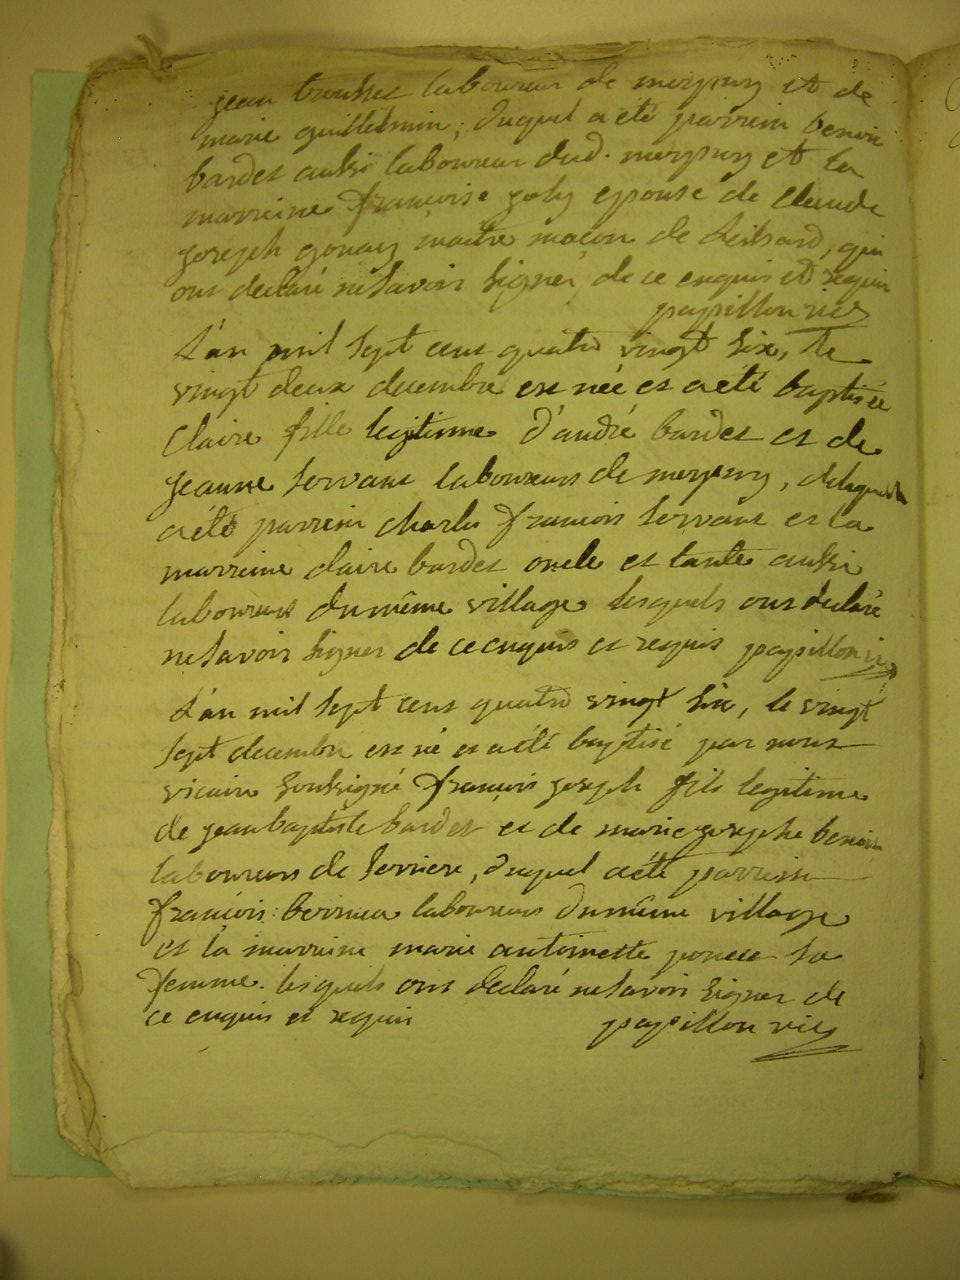 jean trousset laboureur de meynry et de
marie guillelmin, duquel a eté parrein benoit
bardet aussi laboureur dud. meynry et la
marreine françoise joly epouse de claude
joseph maitre macon de qui
ont declaré ne savoir signer de ce enquis et requis
papillon vic
L'an mil sept cent quatre vingt six, le
vingt deux decembre est née et a eté baptisée
Claire fille legitime d'andré bardet et de
jeanne servant laboureurs de meynry, delaquelle
a eté parrein charles francois servant et la
marreine claire bardet oncle et tante aussi
laboureurs du même village lesquels ont declaré
ne savoir signer de ce enquis et requis papillon vic
L'an mil sept cent quatre vingt six, le vingt
sept decembre est né et a eté baptisé par nous
vicaire soussigné françois joseph fils legitime
de jean baptiste bardet et de marie josephe benoit
laboureurs de duquel a eté parrein
francois laboureur du même village
et la marreine marie antoinette sa
femme. lesquels ont declaré ne savoir signer de
ce enquis et requis papillon vic